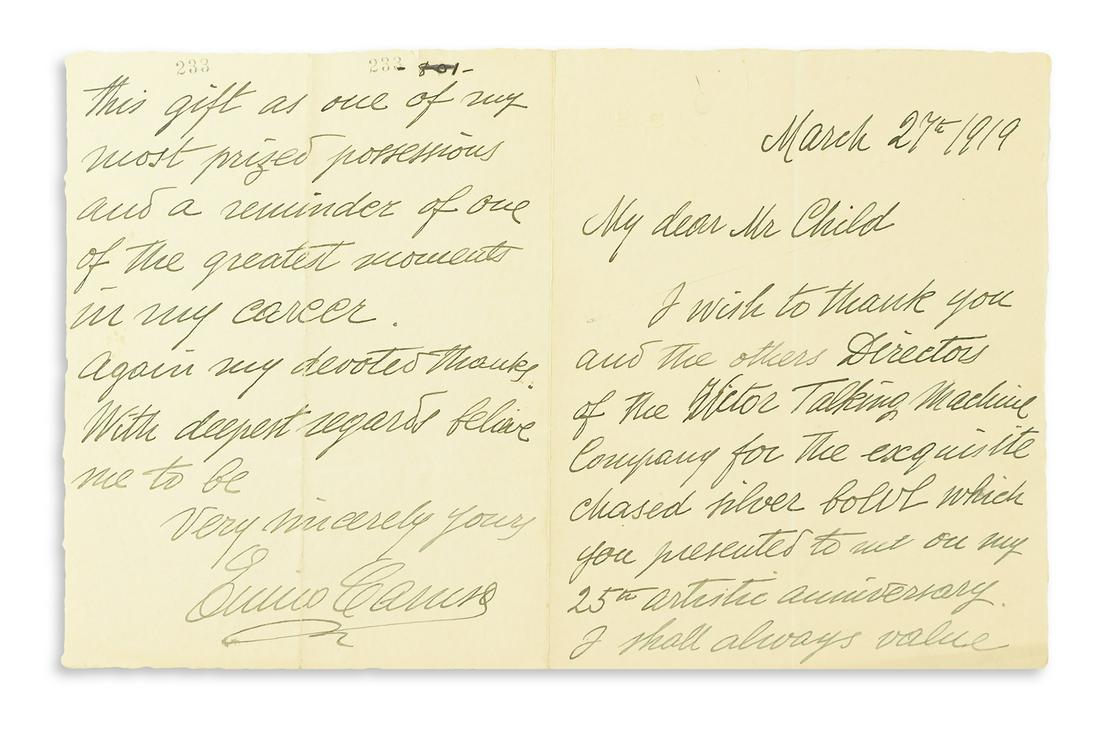 March 27th 1919
My dear Mr Child
I wish to thank you
and the others Directors
of the Victor Talking Machine
Company for the exquisite
chased silver bowl which
you presented to me on my
25th artistic anniversary.
I shall always value
233
233 - 801 -
this gift as one of my
most prized possessions
and a reminder of one
of the greatest moments
in my career.
Again my devoted thanks.
With deepest regards believe
me to be
Very sincerely yours
Enrico Caruso